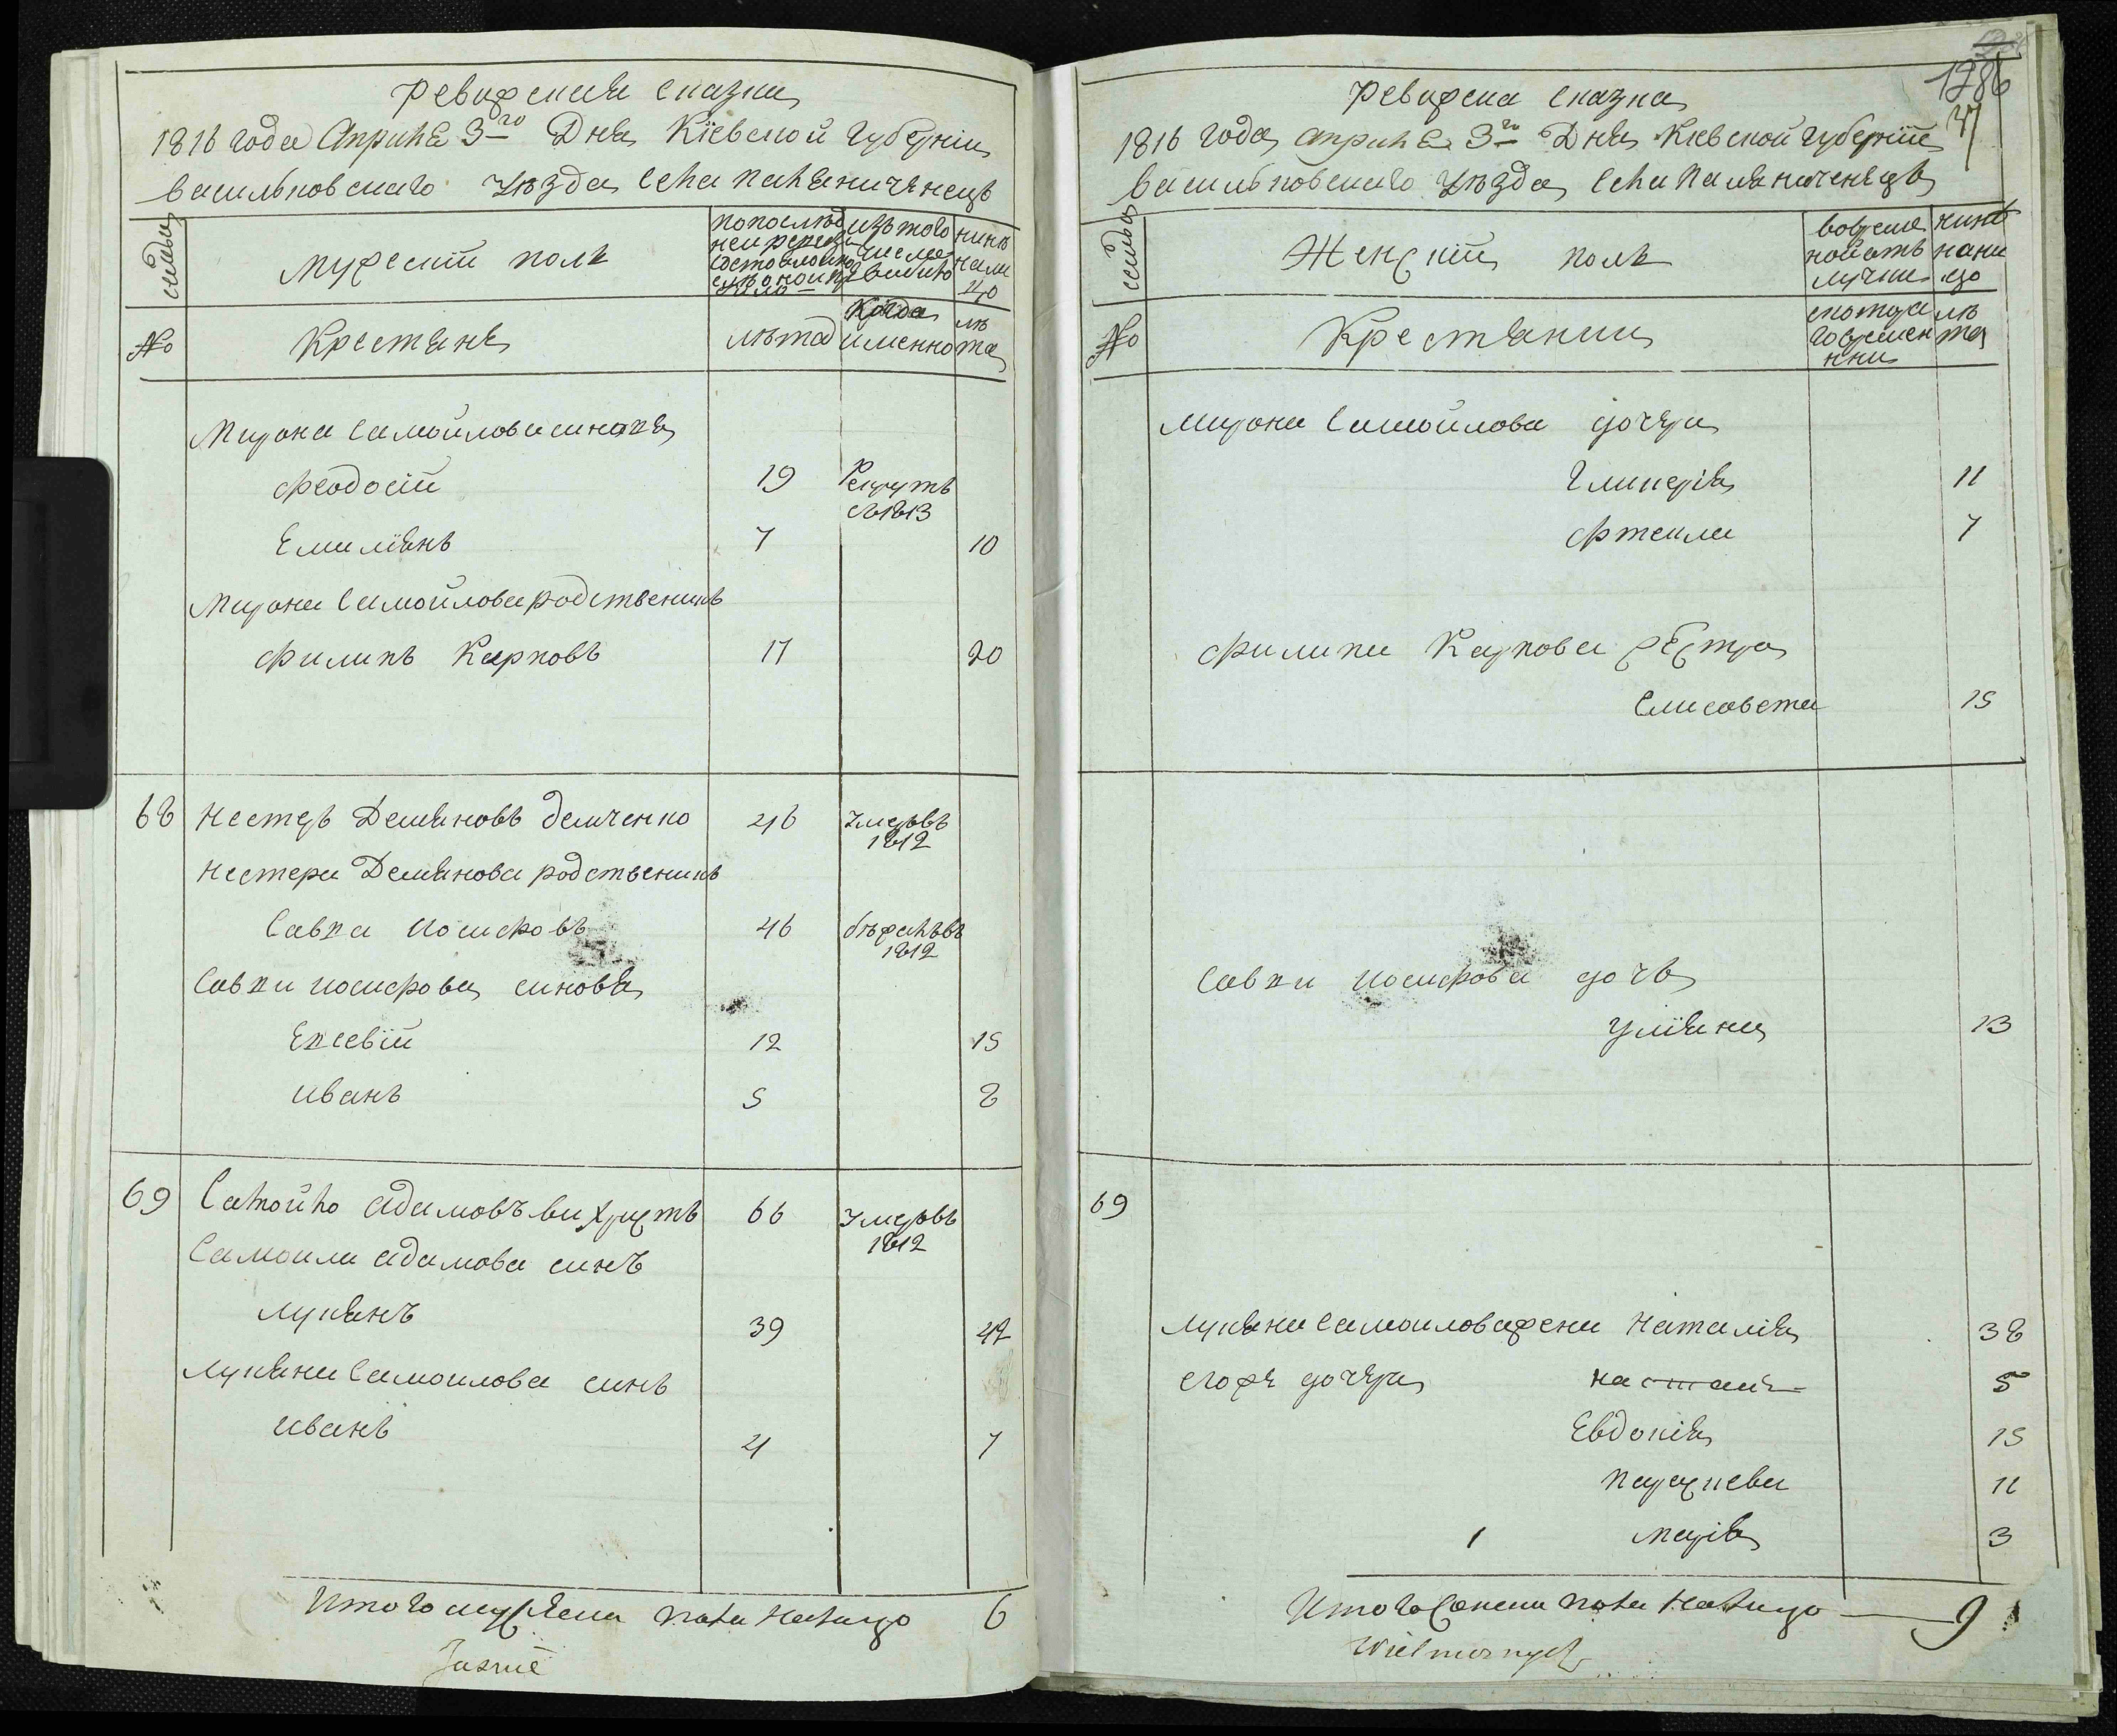 Ревизския сказки
1816 года Априля 3го Дня Кіевской Губерніи
васильковскаго Уезда села палянычинець
семьи
Мужескій полъ
по последней ревизіи состояло и после оной прибыло
изъ того числа выбыло
ныне на лицо
№
Крестяне
лета
Когда именно
лета
Мирона Самойлова синовя
Феодосій 19 Рекрутъ въ 1813
Емиліянъ 7 10
Мирона Самойлова родственикъ
Филипъ Карповъ 17 20
68 Нестеръ Демяновъ демченко 46 Умеръ въ 1812
Нестера Демянова родственикъ
Савка иосифовъ 46 бежалъ въ 1812
Савки иосифова синовя
Евсевій 12 15
иванъ 5 8
69 Самойло адамовъ вихристъ 66 Умеръ въ 1812
Самоила адамова синъ
лукянъ 39 42
лукяна Самоилова синъ
иванъ 4 7
Итого мужеска пола налицо 6
1286
37
Ревизска сказка
1816 года априля 3го Дня Кіевской губерніи
васильковскаго уезда села паляниченецъ
семьи
Женскій полъ
во временной отлучке
ныне на лицо
№
Крестянки
с котораго времени
лета
мирона Самойлова дочери
Гликерія 11
Фтекла 7
Филипа Карпова сестра
Елисовета 15
Савки иосифова дочь
уліяна 13
69
лукяна Самоилова жена Наталія 38
егоже дочери настасія 5
Евдокія 15
параскева 11
марія 3
Итого женска пола налицо 9